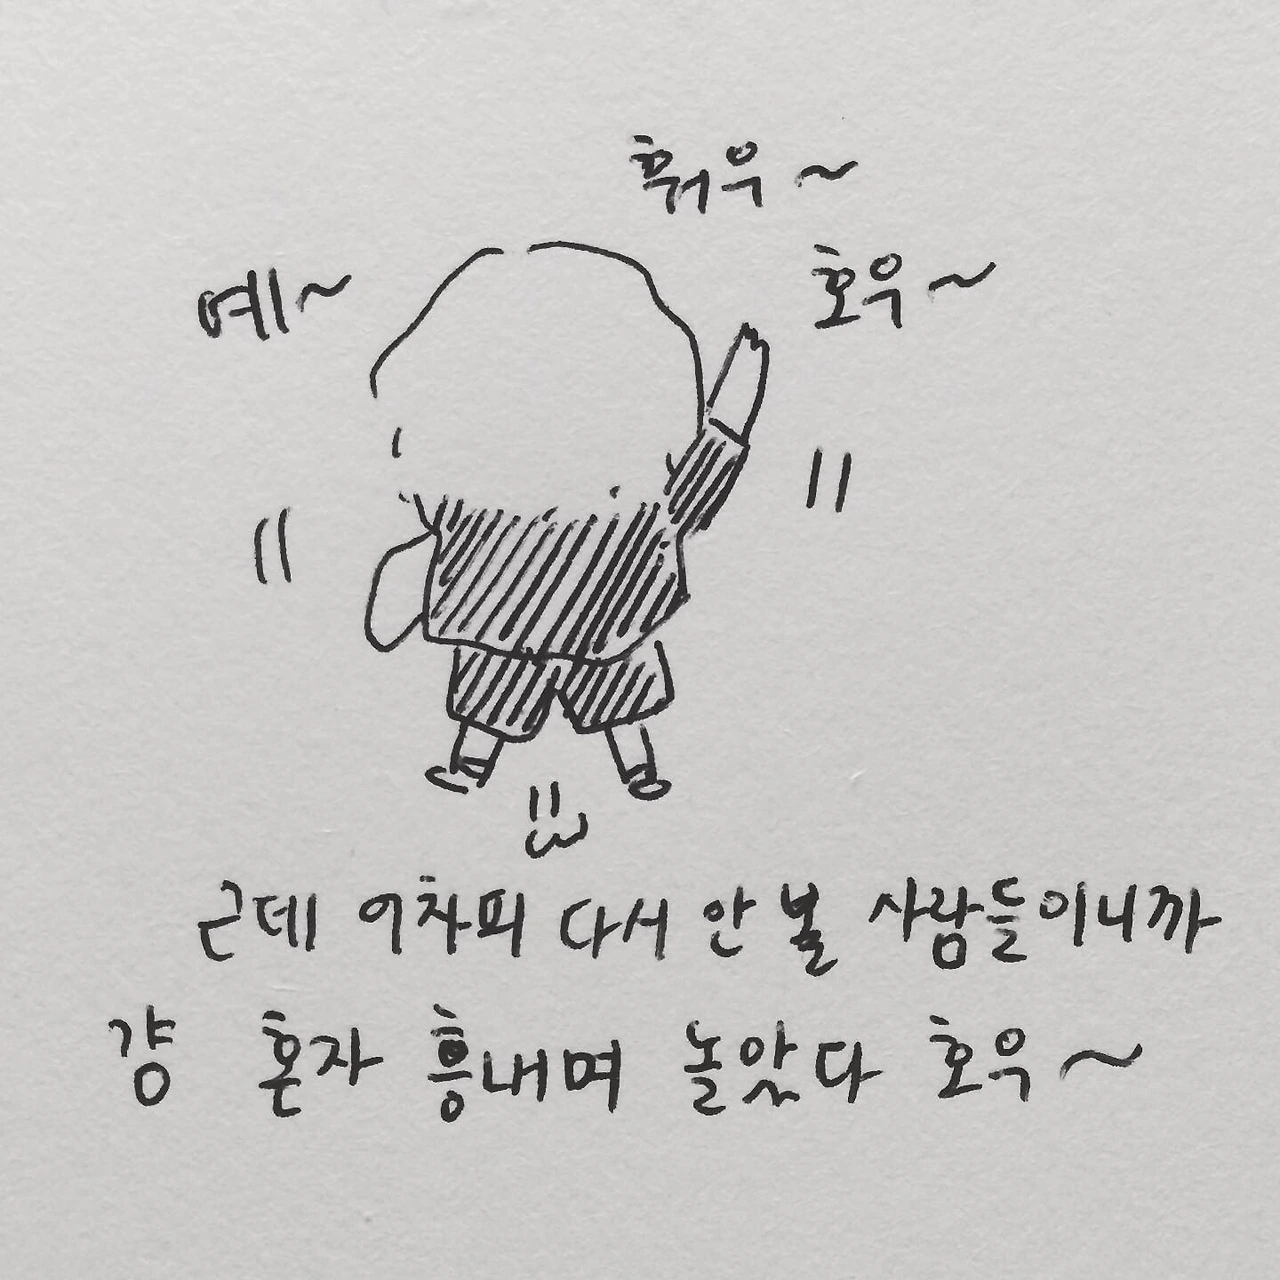 훠우~
호우~
예~
근데 어차피 다시 안 볼 사람들이니까
걍 혼자 흥내며 놀았다 호우~